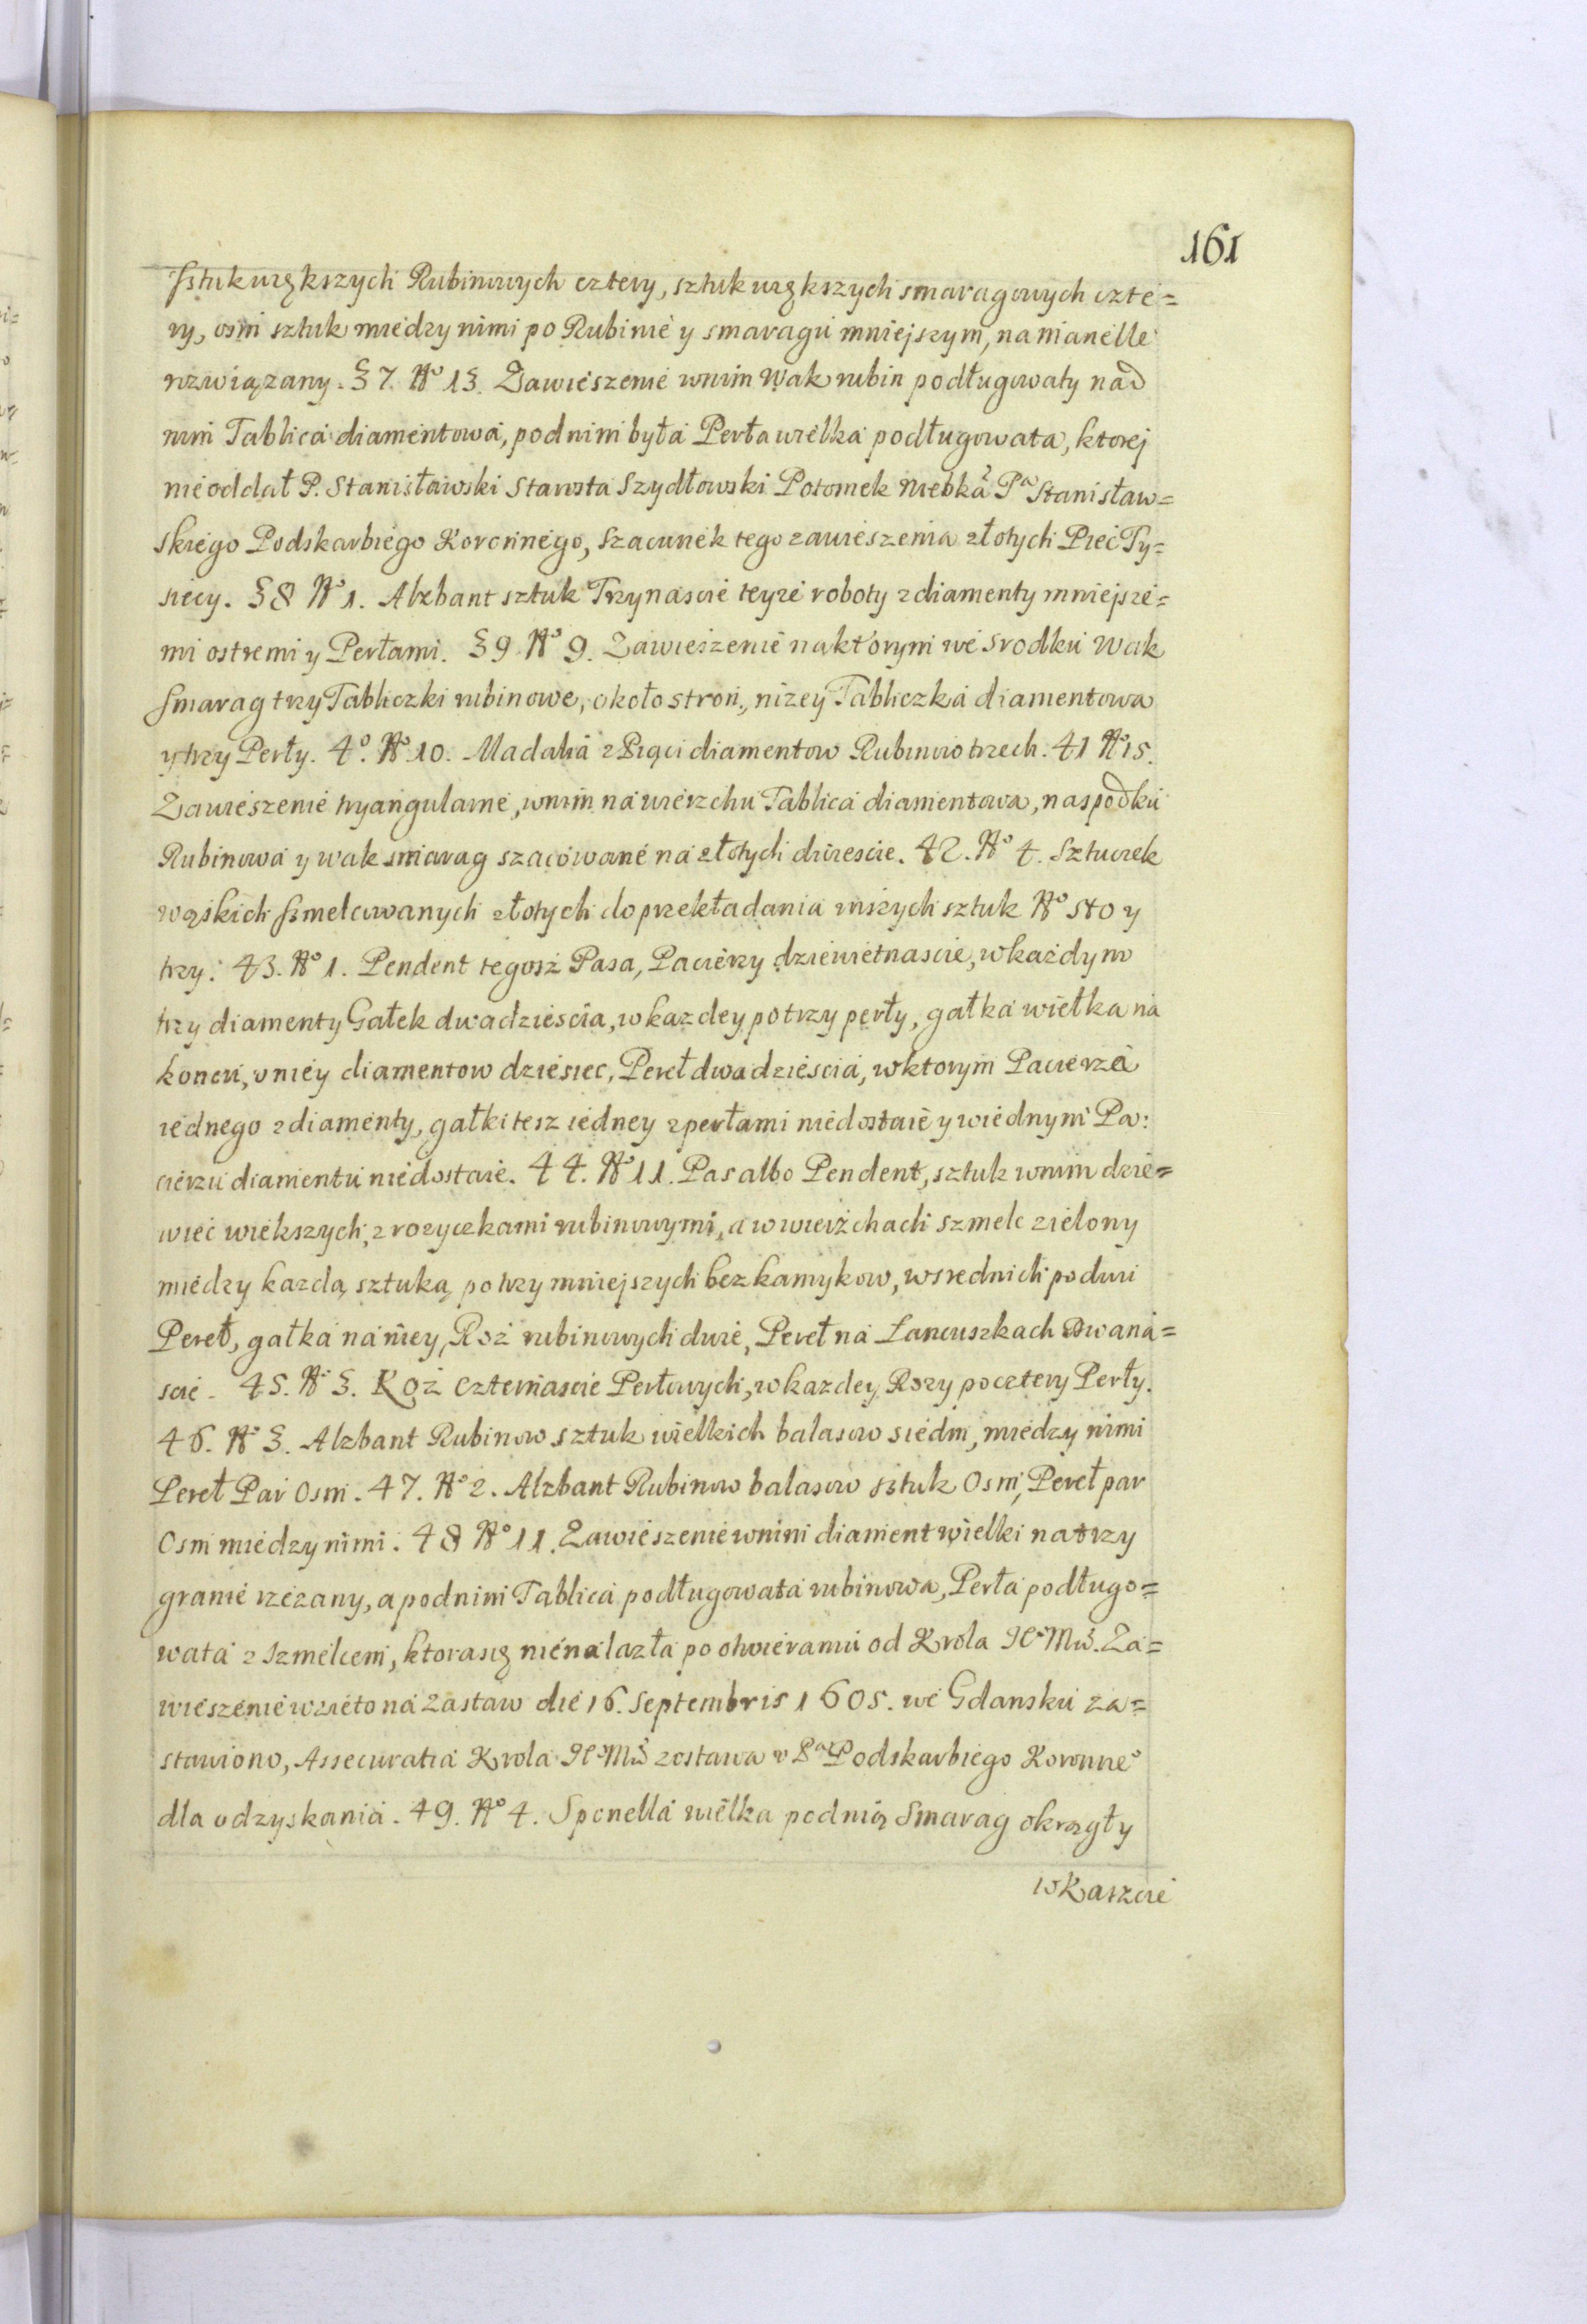 161
sztuk większych Rubinowych cztery, sztuk większych smaragowych czte=
ry, osm sztuk miedzy nimi po Rubinie y smaragu mniejszym, na manelle
rozwiązany. 37. No 13. Zawieszenie wnim Wak rubin podługowaty nad
nim Tablica diamentowa, pod nim była Perła wielka podługowata, ktorej
nie oddał P. Stanisławski Starosta Szydłowski Potomek Pa Stanisław=
skiego Podskarbiego Koronnego, szacunek tego zawieszenia złotych Pieć Ty=
siecy. 38 No 1. Alzbant sztuk Trzynascie teyze roboty z diamenty mniejsze=
mi ostremi y Perłami. 39 No 9. Zawieszenie na ktorym we srodku Wak
smarag trzy Tabliczki rubinowe, około stron, nizey Tabliczka diamentowa
y trzy Perły. 40. No 10. Madalia z Piąci diamentow Rubinow trzech. 41 No 15.
Zawieszenie tryangularne, wnim na wierzchu Tablica diamentowa, na spodku
Rubinowa y wak smarag szacowane na złotych dwiescie. 42. No 4. Sztuczek
wąskich szmelcowanych złotych do przekładania inszych sztuk No sto y
trzy. 43. No 1. Pendent tegosz Pasa, Pacierzy dziewietnascie, w każdym
trzy diamenty Gałek dwadziescia, w kazdey po trzy perły, gałka wielka na
koncu, u niey diamentow dziesiec, Pereł dwadziescia, w ktorym Pacierza
iednego z diamenty, gałki tesz iedney z perłami niedostaie y w iednym Pa:
cierzu diamentu niedostaie. 44. No 11. Pas albo Pendent, sztuk wnim dzie=
wiec wiekszych, z rozyczkami rubinowymi, a w wierżchach szmelc zielony
miedzy kazdą sztuką po trzy mniejszych bez kamykow, w srednich po dwi
Pereł, gałka na niey, Roż rubinowych dwie, Pereł na Lancuszkach Dwana=
scie. 45. No 3. Roż czternascie Perłowych, w kazdey Rozy po cztery Perły.
46. No 3. Alzbant Rubinow sztuk wielkich balasow siedm, miedzy nimi
Pereł Par Osm. 47. No 2. Alzbant Rubinow balasow sztuk Osm, Pereł par
Osm miedzy nimi. 48 No 11. Zawieszenie wnim diament wielki na trzy
granie rzezany, a pod nim Tablica podługowata rubinowa, Perła podługo=
wata z szmelcem, ktora się nie nalazła po otwieraniu od Krola Je Mći. Za=
wieszenie wzieto na zastaw die 16. Septembris 1605. we Gdansku za=
stawiono, Assecuratia Krola Je Mći zostawa u Pa Podskarbiego Koronne°
dla odzyskania. 49. No 4. Spenella wielka pod nią Smarag okrągły
w Kaszcie